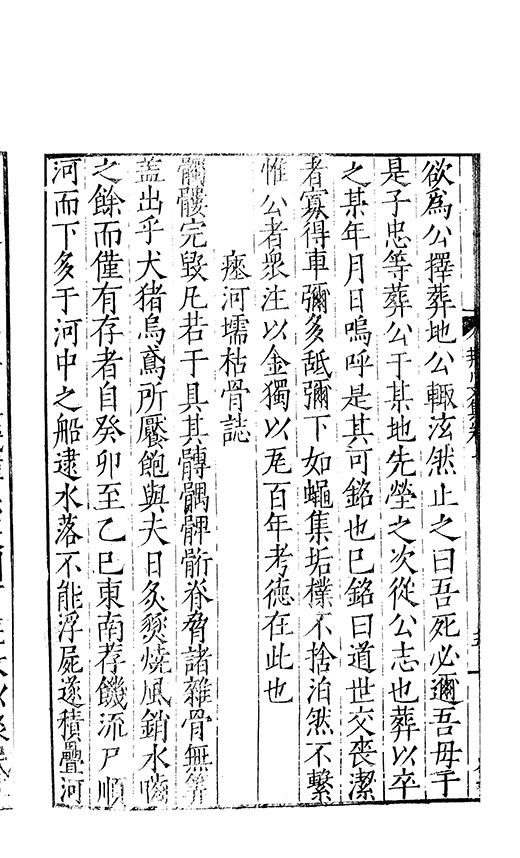 欲為公擇葬地公輙泫然止之曰吾死必邇吾毋于
是子忠等葬公于某地先塋之次從公志也葬以卒
之某年月日嗚呼是其可銘也已銘曰道世交喪潔
者寡得車彌多舐彌下如蠅集垢檏不捨泊然不繫
惟公者衆注以金獨以瓦百年考德在此也
瘞河壖枯骨誌
髑髏完毀凢若干具其髆髃髀䯒脊脅諸雜骨無筭
蓋出乎犬猪烏鳶所饜飽與夫日炙燹燒風銷水嚙
之餘而僅有存者自癸卯至乙巳東南荐饑流尸順
河而下多于河中之船逮水落不能浮屍遂積疊河